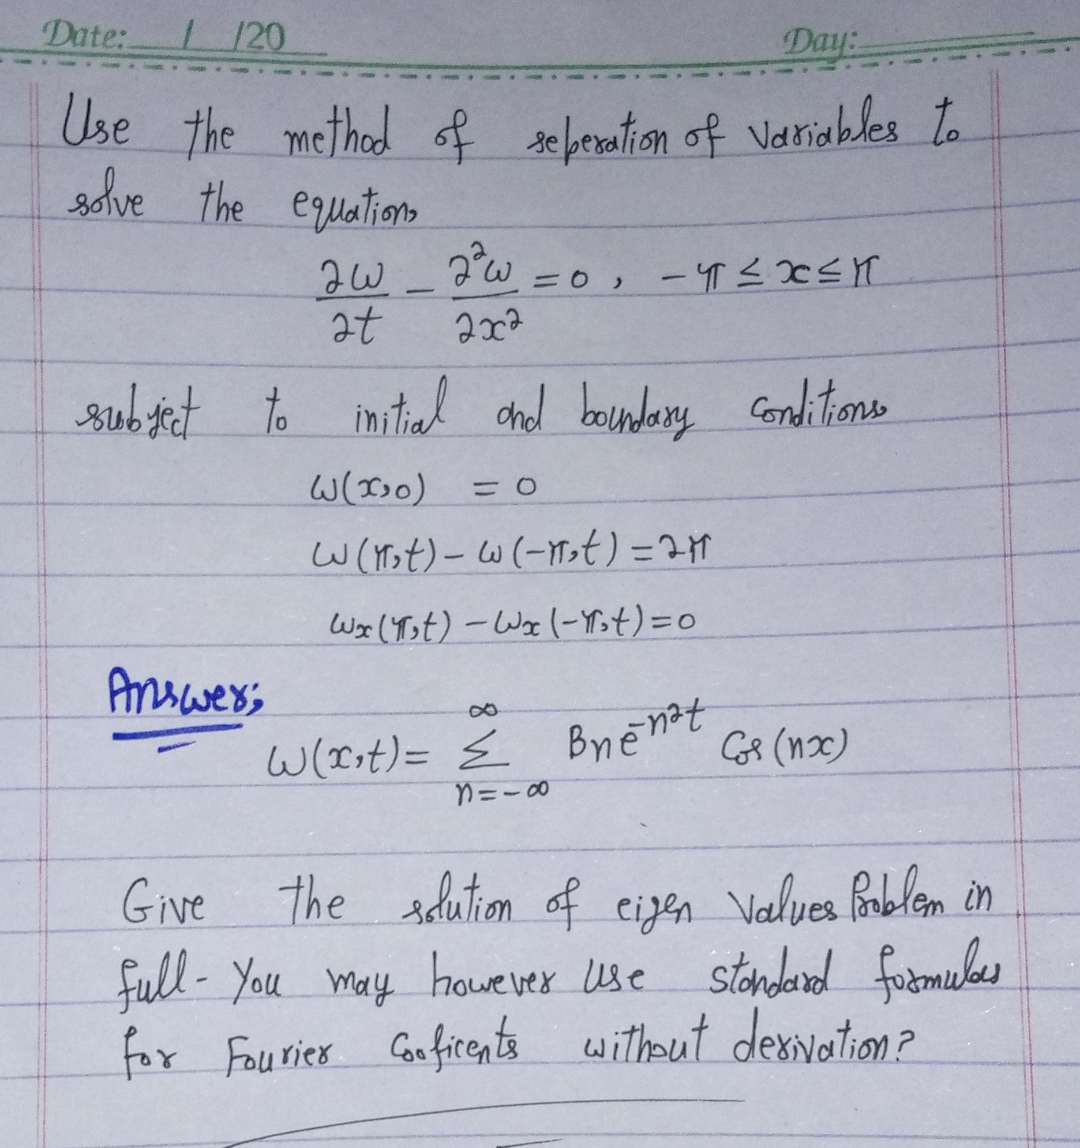 Date: / /20 Day:
Use the method of seperation of variables to
solve the equation,
∂w/∂t - ∂²w/∂x² = 0 , -π ≤ x ≤ π
subject to initial and boundary conditions
w(x,0) = 0
w(π,t) - w(-π,t) = 2π
wx(π,t) - wx(-π,t) = 0
Answer;
w(x,t) = Σ n=-∞ ∞ Bn e^-n²t Cos(nx)
Give the solution of eigen values Problem in
full - You may however use standard formulas
for Fourier Cooficents without derivation?